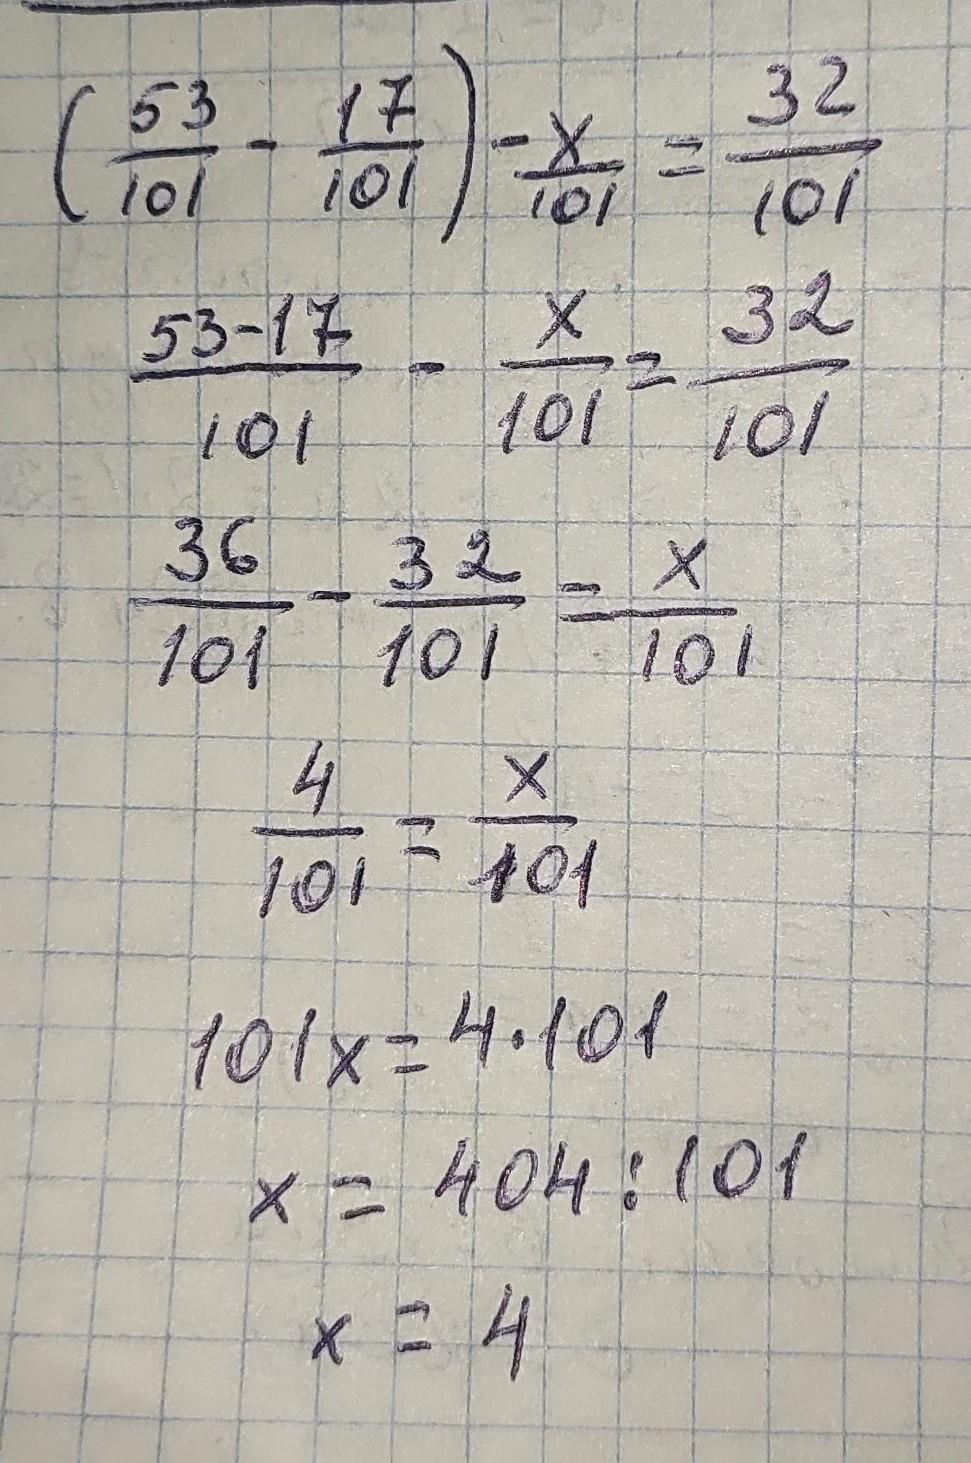 (53/101 - 17/101) - x/101 = 32/101
53-17/101 - x/101 = 32/101
36/101 - 32/101 = x/101
4/101 = x/101
101x = 4·101
x = 404:101
x = 4